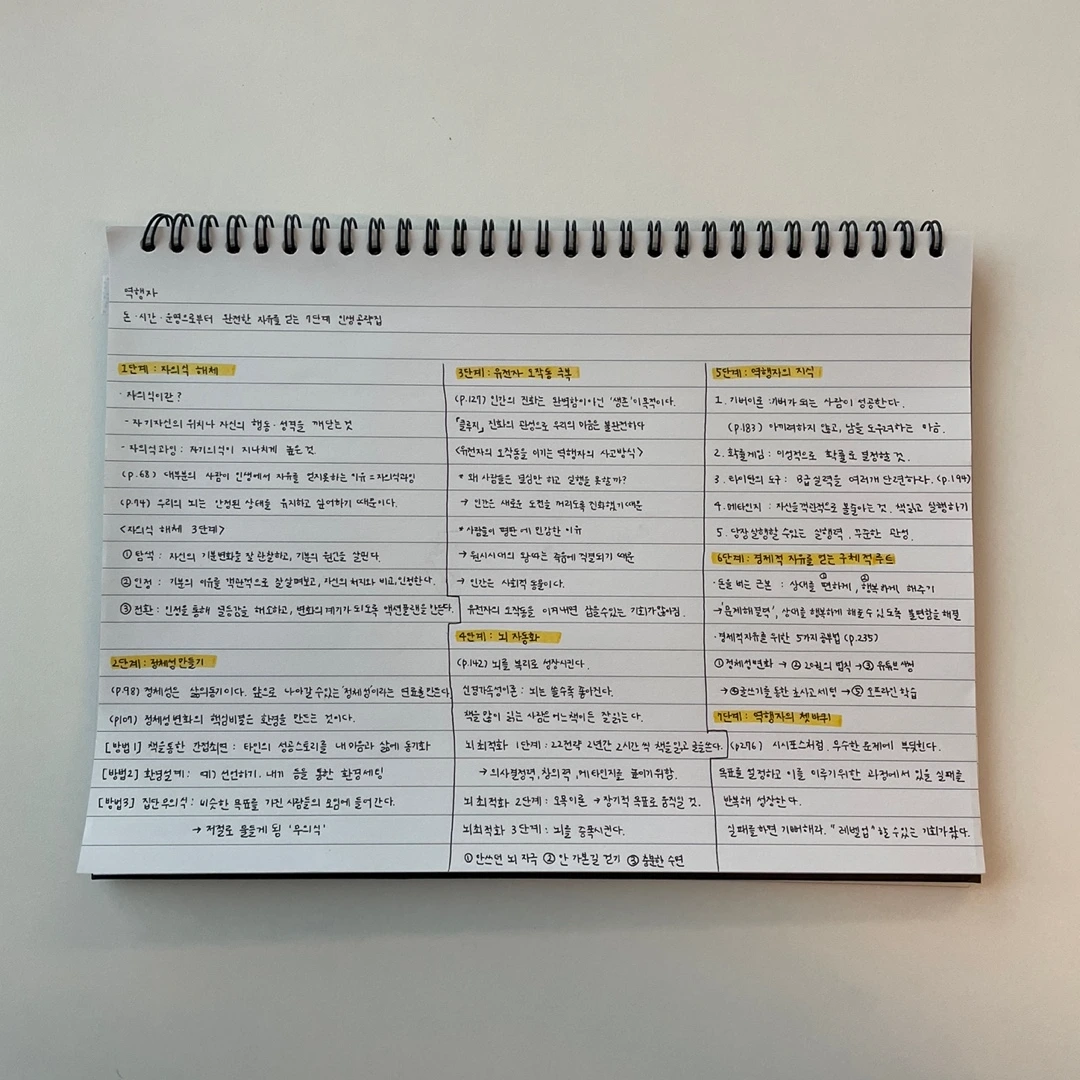 역행자
돈·시간·운명으로부터 완전한 자유를 얻는 7단계 인생공략집
1단계 : 자의식 해체
· 자의식이란?
- 자기자신의 위치나 자신의 행동·성격을 깨닫는것
- 자의식과잉 : 자기의식이 지나치게 높은것
(p.68) 대부분의 사람이 인생에서 자유를 얻지못하는 이유 = 자의식과잉
(p.74) 우리의 뇌는 안정된 상태를 유지하고 싶어하기 때문이다.
<자의식 해체 3단계>
① 탐색 : 자신의 기분변화를 잘 관찰하고, 기분의 원근을 살핀다.
② 인정 : 기분의 이유를 객관적으로 잘 살펴보고, 자신의 처지와 비교, 인정한다.
③ 전환 : 인정을 통해 열등감을 해소하고, 변화의 계기가 되도록 액션플랜을 만든다.
2단계 : 정체성 만들기
(p.98) 정체성은 삶의동기이다. 앞으로 나아갈 수있는 '정체성이라는 연료를 만든다
(p107) 정체성 변화의 핵심비결은 환경을 만드는 것이다.
[방법1] 책을통한 간접최면 : 타인의 성공스토리를 내 마음과 삶에 동기화
[방법2] 환경설계 : 예) 선언하기. 내기 등을 통한 환경세팅
[방법3] 집단무의식 : 비슷한 목표를 가진 사람들의 모임에 들어간다.
→ 저절로 물들게 됨 '무의식'
3단계 : 유전자 오작동 극복
(p.127) 인간의 진화는 완벽함이아닌 '생존'이목적이다.
『클루지』 진화의 관성으로 우리의 마음은 불완전하다
<유전자의 오작동을 이기는 역행자의 사고방식>
* 왜 사람들은 결심만 하고 실행을 못할까?
→ 인간은 새로운 도전을 꺼리도록 진화했기때문
* 사람들이 평판에 민감한 이유
→ 원시시대의 왕따는 죽음에 직결되기 때문
→ 인간은 사회적 동물이다.
유전자의 오작동을 이겨내면 잡을수있는 기회가많아짐.
4단계 : 뇌 자동화
(p.142) 뇌를 복리로 성장시킨다.
신경가소성이론 : 뇌는 쓸수록 좋아진다.
책을 많이 읽는 사람은 어느책이든 잘읽는다.
뇌 최적화 1단계 : 22전략 2년간 2시간 씩 책을읽고 글을쓴다.
→ 의사결정력, 창의력, 메타인지를 높이기위함.
뇌 최적화 2단계 : 오목이론 → 장기적 목표로 움직일 것.
뇌최적화 3단계 : 뇌를 증폭시킨다.
① 안쓰던 뇌 자극 ② 안 가본길 걷기 ③ 충분한 수면
5단계 : 역행자의 지식
1. 기버이론 : 기버가 되는 사람이 성공한다.
(p.183) 아끼려하지 않고, 남을 도우려하는 마음.
2. 확률게임 : 이성적으로 확률로 결정할것.
3. 타이탄의 도구 : B급 실력을 여러개 단련하라. (p.194)
4. 메타인지 : 자신을객관적으로 볼줄아는것. 책읽고 실행하기
5. 당장 실행할 수있는 실행력, 꾸준한 관성
6단계 : 경제적 자유를 얻는 구체적루트
· 돈을 버는 근본 : 상대를 ①편하게, ②행복하게 해주기
→ '문제해결력', 상대를 행복하게 해줄수 있도록 불편함을 해결
· 경제적자유를 위한 5가지 공부법 (p.235)
① 정체성변화 → ② 20권의 법칙 → ③ 유튜브 시청
→ ④ 글쓰기를 통한 초사고 세팅 → ⑤ 오프라인 학습
7단계 : 역행자의 쳇바퀴
(p276) 시시포스처럼, 무수한 문제에 부딪힌다.
목표를 설정하고 이를 이루기위한 과정에서 있을 실패를
반복해 성장한다.
실패를하면 기뻐해라. "레벨업" 할수있는 기회가 왔다.